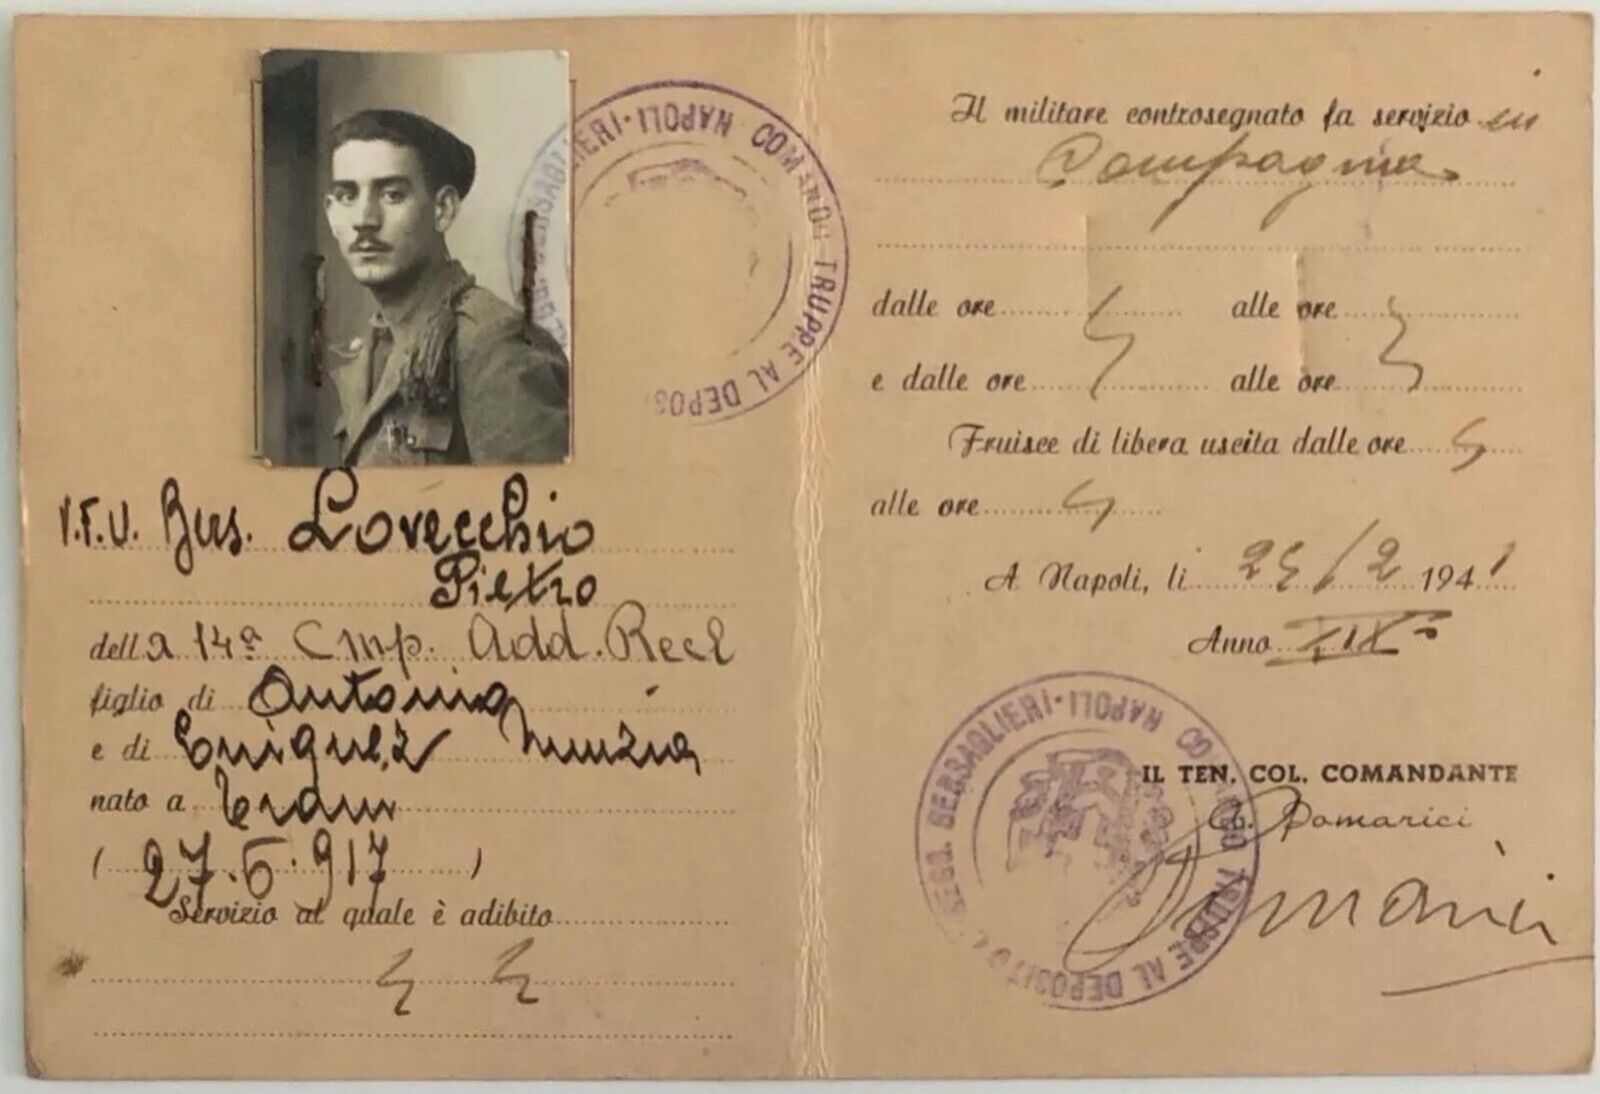 V.F.U. Bers. Lovecchio
Pietro
della 14ª Cmp. Add. Recl
figlio di Antonio
e di Eniquez Nunzia
nato a Trani
( 27.6.917 )
Servizio al quale è adibito
COMANDO TRUPPE AL DEPOSITO REGG. BERSAGLIERI · NAPOLI
Il militare controsegnato fa servizio in
Compagnia
dalle ore alle ore
e dalle ore alle ore
Fruisce di libera uscita dalle ore
alle ore
A Napoli, li 25/2 1941
Anno XIX°
IL TEN. COL. COMANDANTE
G. Pomarici
Pomarici
COMANDO TRUPPE AL DEPOSITO REGG. BERSAGLIERI · NAPOLI